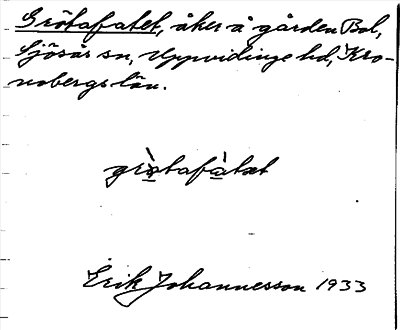 Grötafatet, åker å gården Bol,
Sjösås sn, Uppvidinge hd, Kro-
nobergs län.
grø̀tafàtet
Erik Johannesson 1933